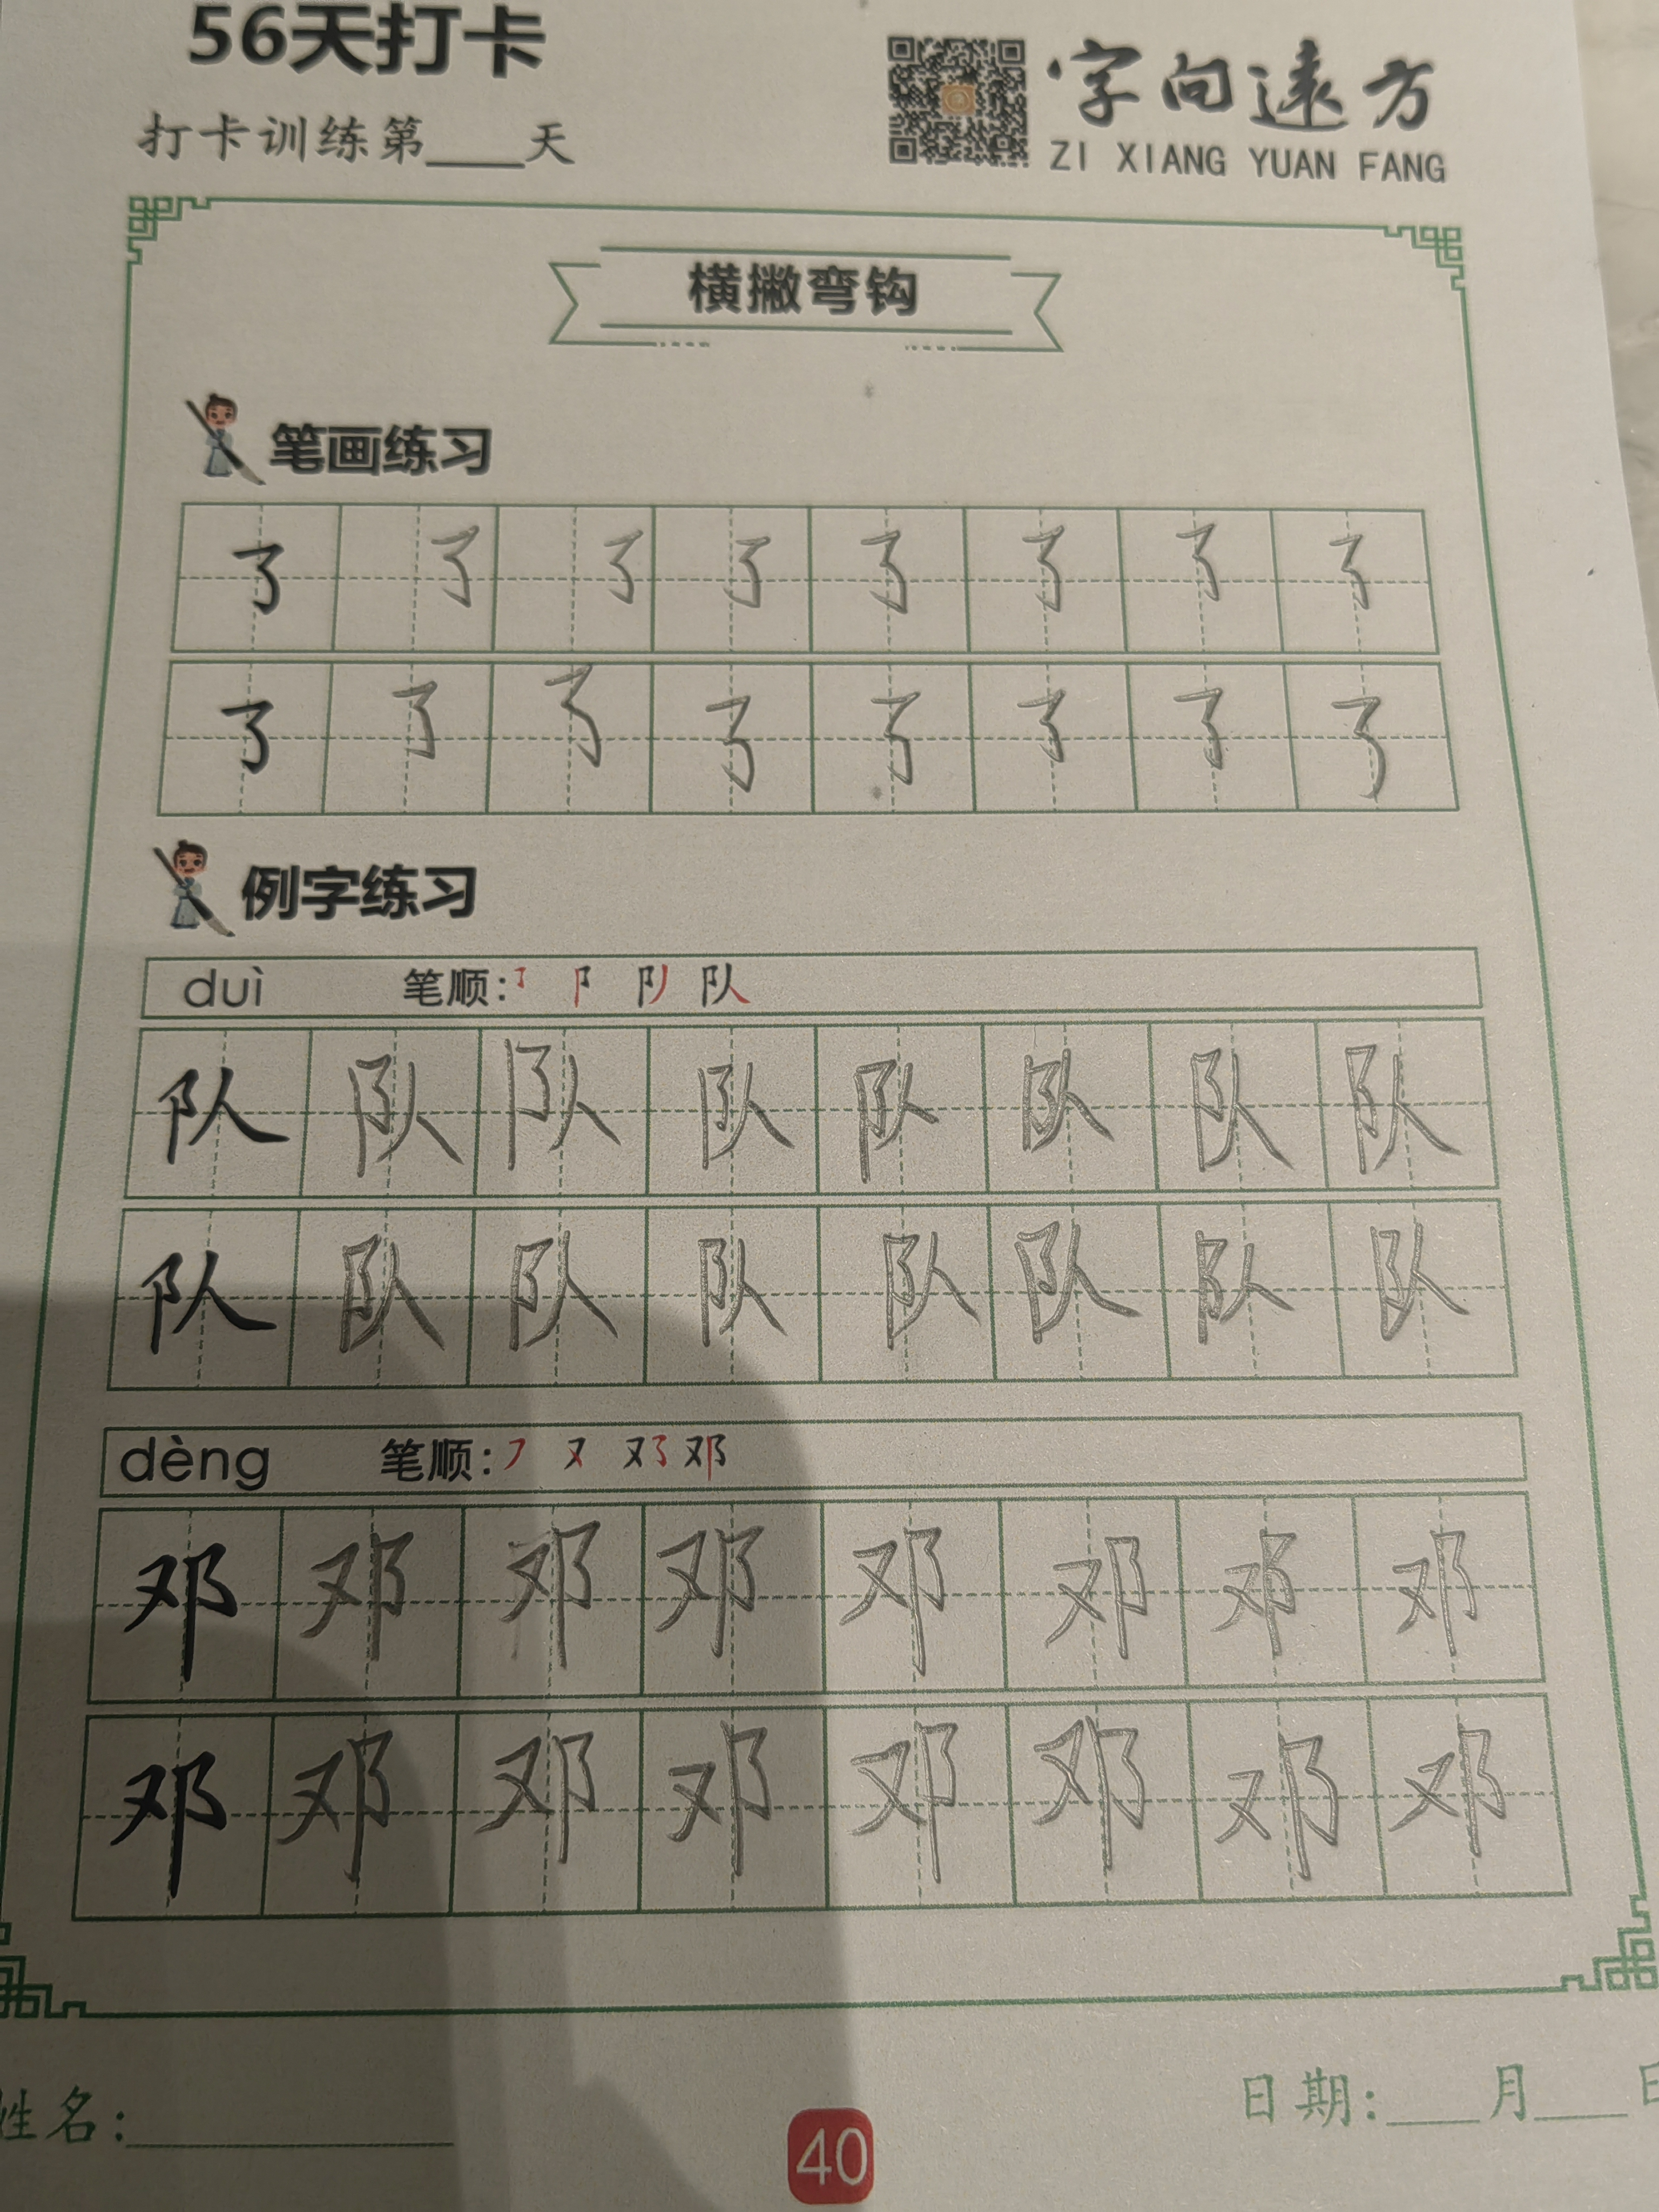 56天打卡
打卡训练第____天
字向遠方
ZI XIANG YUAN FANG
横撇弯钩
笔画练习
㇌ ㇌ ㇌ ㇌ ㇌ ㇌ ㇌ ㇌
㇌ ㇌ ㇌ ㇌ ㇌ ㇌ ㇌ ㇌
例字练习
duì 笔顺: 队
队 队 队 队 队 队 队 队
队 队 队 队 队 队 队 队
dèng 笔顺: 邓
邓 邓 邓 邓 邓 邓 邓 邓
邓 邓 邓 邓 邓 邓 邓 邓
姓名:
日期:____月____日
40